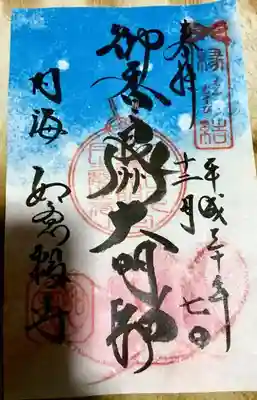 奉拝
縁結
平成三十年
十二月七日
御香良州大明神
内海 如意輪寺